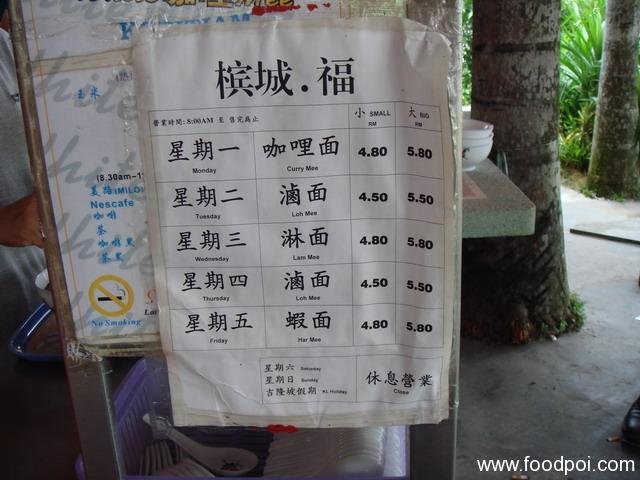 槟城.福
營業時間: 8:00AM 至 售完為止
小 SMALL RM
大 BIG RM
星期一 Monday 咖哩面 Curry Mee 4.80 5.80
星期二 Tuesday 滷面 Loh Mee 4.50 5.50
星期三 Wednesday 淋面 Lam Mee 4.80 5.80
星期四 Thursday 滷面 Loh Mee 4.50 5.50
星期五 Friday 蝦面 Har Mee 4.80 5.80
星期六 Saturday
星期日 Sunday
吉隆坡假期 KL Holiday
休息營業 Close
玉米
(8.30am-1
美祿(MILO)
Nescafe
咖啡
茶
咖啡黑
茶黑
No Smoking
www.foodpoi.com